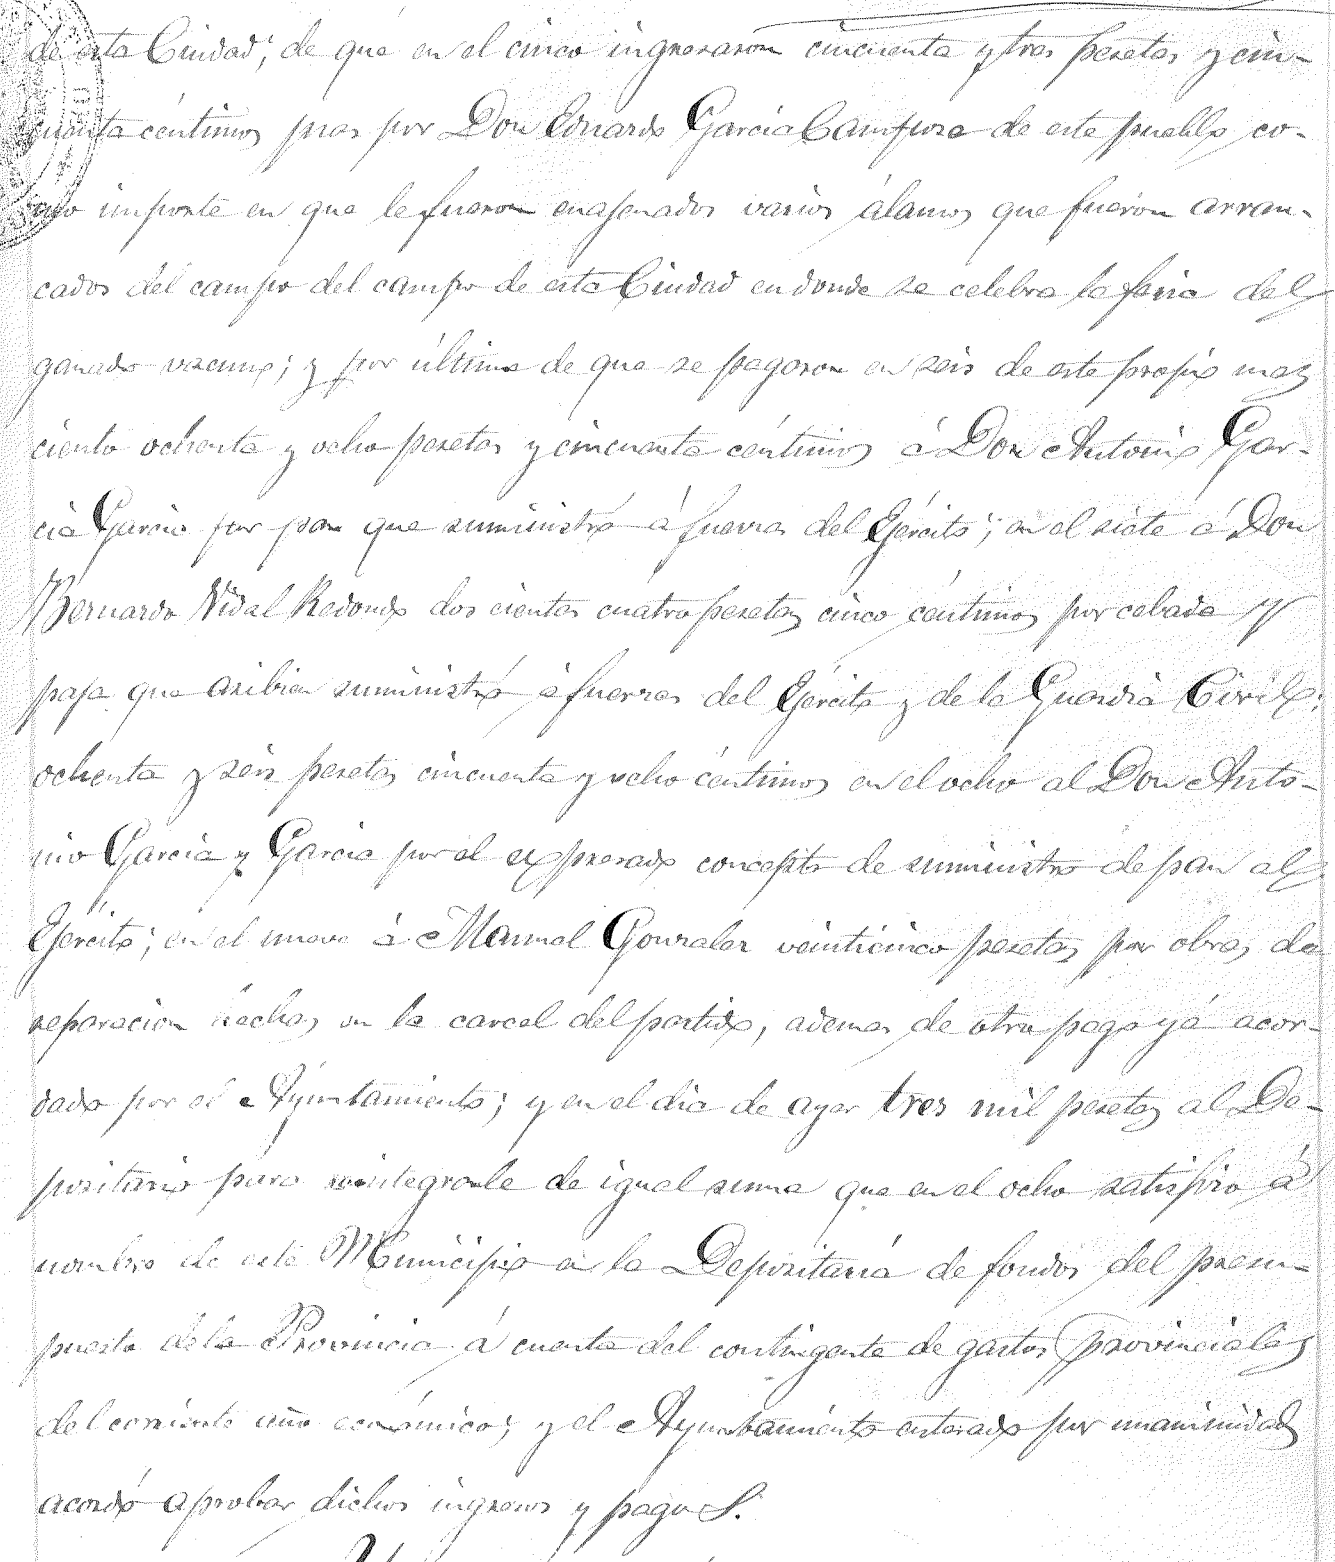 de esta Ciudad; de que en el cinco ingresaron cincuenta y tres pesetas y cin-
cuenta céntimos pias por Don Eduardo García Campuza de este pueblo co-
mo importe en que le fueron enajenados varios álamos que fueron arran-
cados del campo del campo de esta Ciudad en donde se celebra la feria del
ganado vacuno; y por último de que se pagaron en seis de este propio mes
ciento ochenta y ocho pesetas y cincuenta céntimos á Don Antonio Gar-
cia Garcia por pan que suministró á fuerzas del Ejército; en el siete á Don
Bernardo Vidal Redondo dos cientas cuatro pesetas cinco céntimos por cebada y
paja que asibien suministró á fuerzas del Ejército y de la Guardia Civil;
ochenta y seis pesetas cincuenta y ocho céntimos en el ocho al Don Anto-
nio Garcia y Garcia por el expresado concepto de suministro de pan al
Ejército; en el nueve á Manuel Gonzalez veinticinco pesetas por obras de
reparacion hechas en la carcel del partido, ademas de otro pago yá acor-
dado por el Ayuntamiento; y en el dia de ayer tres mil pesetas al De-
positario para reintegrarle de igual suma que en el ocho satisfizo á
nombre de este Municipio en la Depositaría de fondos del presu-
puesto de la Provincia á cuenta del contingente de gastos provinciales
del corriente año económico; y el Ayuntamiento enterado por unanimidad
acordó aprobar dichos ingresos y pagos.